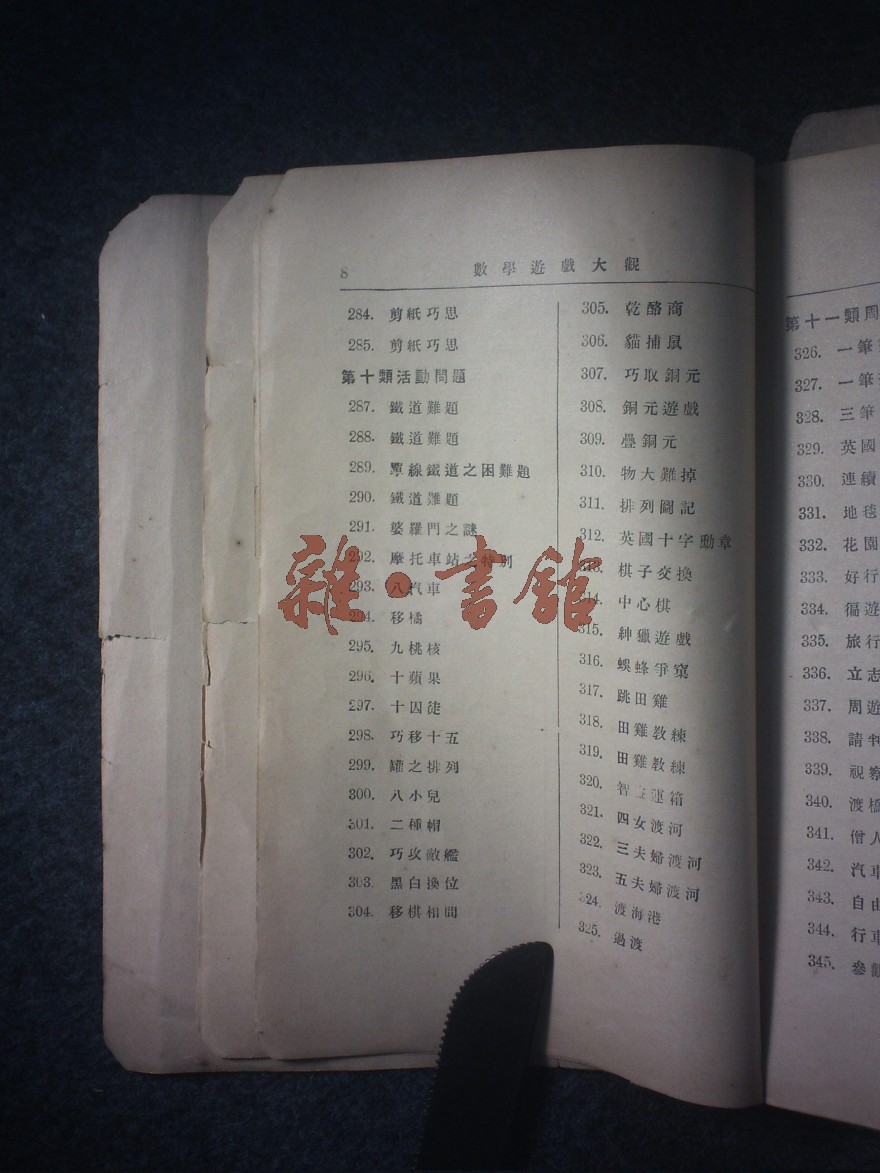 8
數學遊戲大觀
284. 剪紙巧思
285. 剪紙巧思
第十類活動問題
287. 鐵道難題
288. 鐵道難題
289. 單線鐵道之困難題
290. 鐵道難題
291. 婆羅門之謎
292. 摩托車站之特別
293. 八汽車
294. 移橘
295. 九桃核
296. 十蘋果
297. 十囚徒
298. 巧移十五
299. 罐之排列
300. 八小兒
301. 二種帽
302. 巧攻敵艦
303. 黑白換位
304. 移棋相間
305. 乾酪商
306. 貓捕鼠
307. 巧取銅元
308. 銅元遊戲
309. 疊銅元
310. 物大難掉
311. 排列圖記
312. 英國十字勳章
313. 棋子交換
314. 中心棋
315. 紳獵遊戲
316. 蜈蜂爭窠
317. 跳田雞
318. 田雞教練
319. 田雞教練
320. 智 運箱
321. 四女渡河
322. 三夫婦渡河
323. 五夫婦渡河
324. 渡海港
325. 過渡
第十一類周
326. 一筆
327. 一筆
328. 三筆
329. 英國
330. 連續
331. 地毯
332. 花園
333. 好行
334. 徧遊
335. 旅行
336. 立志
337. 周遊
338. 請判
339. 視察
340. 渡橋
341. 僧人
342. 汽車
343. 自由
344. 行車
345. 參觀
雜·書館